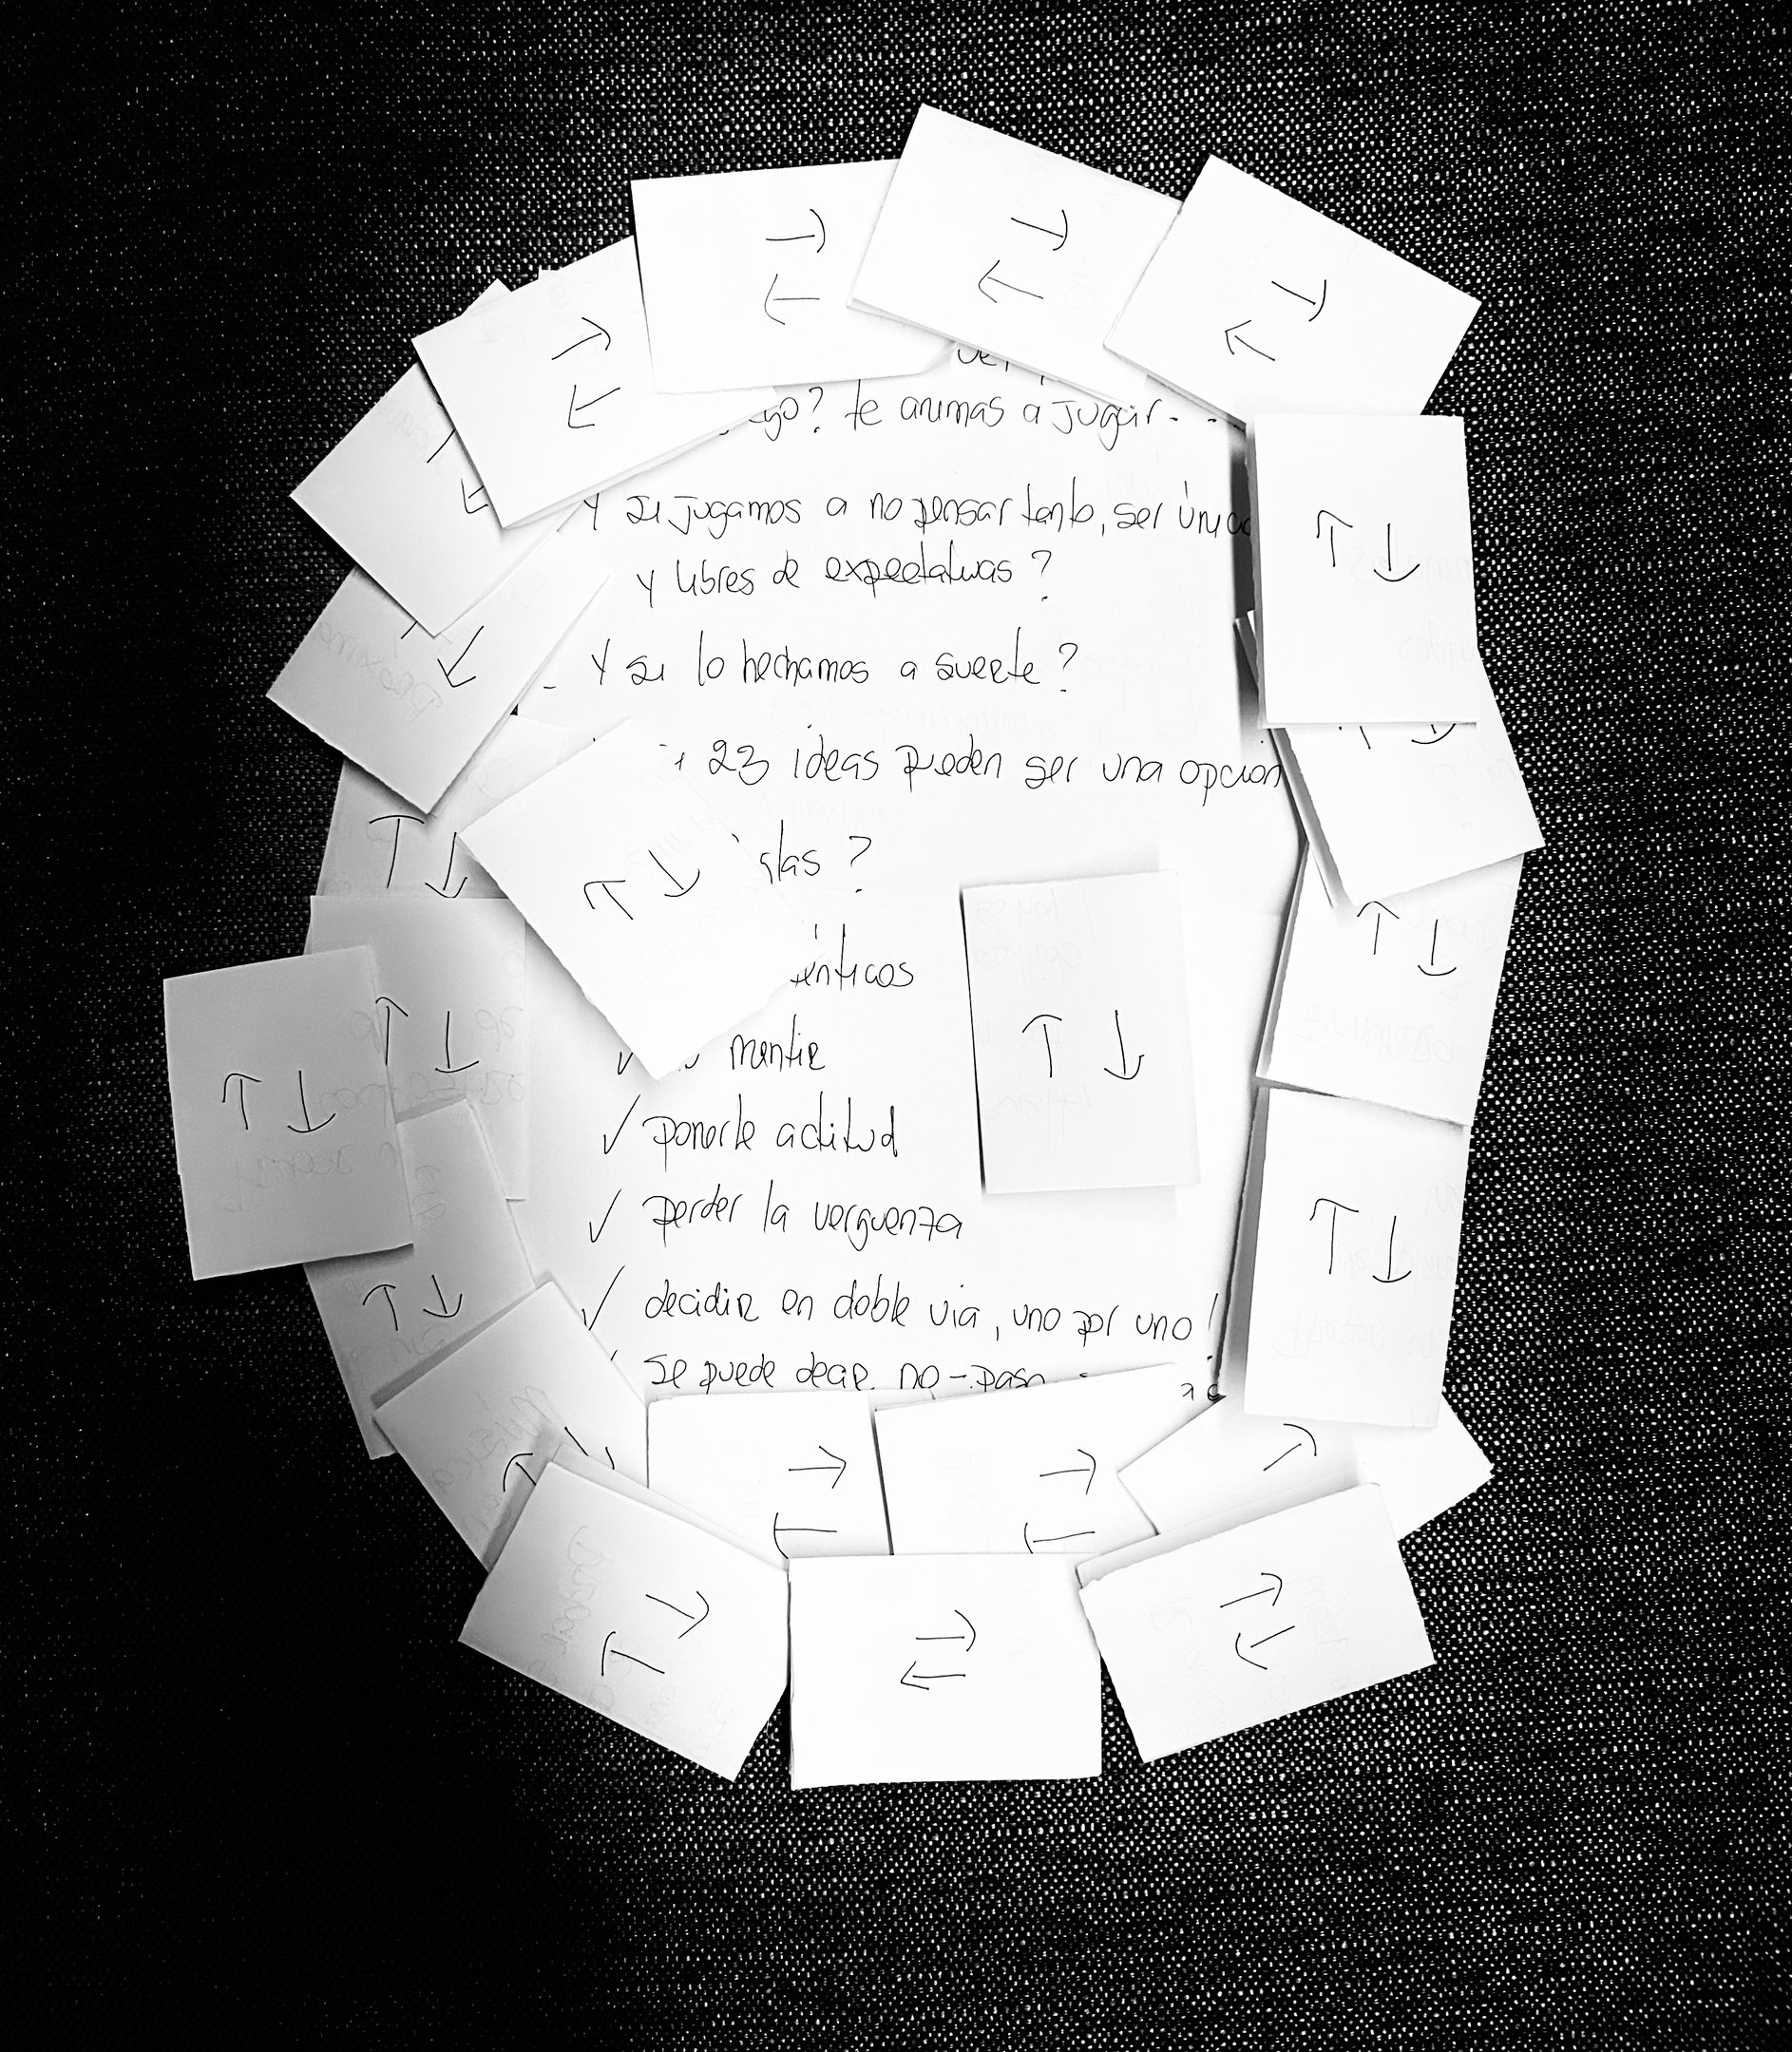 te animas a jugar - -
Y si jugamos a no pensar tanto, ser
y libres de expectativas?
- Y si lo hechamos a suerte?
23 ideas pueden ser una opción
?
mentir
✓ ponerle actitud
✓ perder la verguenza
✓ decidir en doble via, uno por uno!
se puede decir no - paso